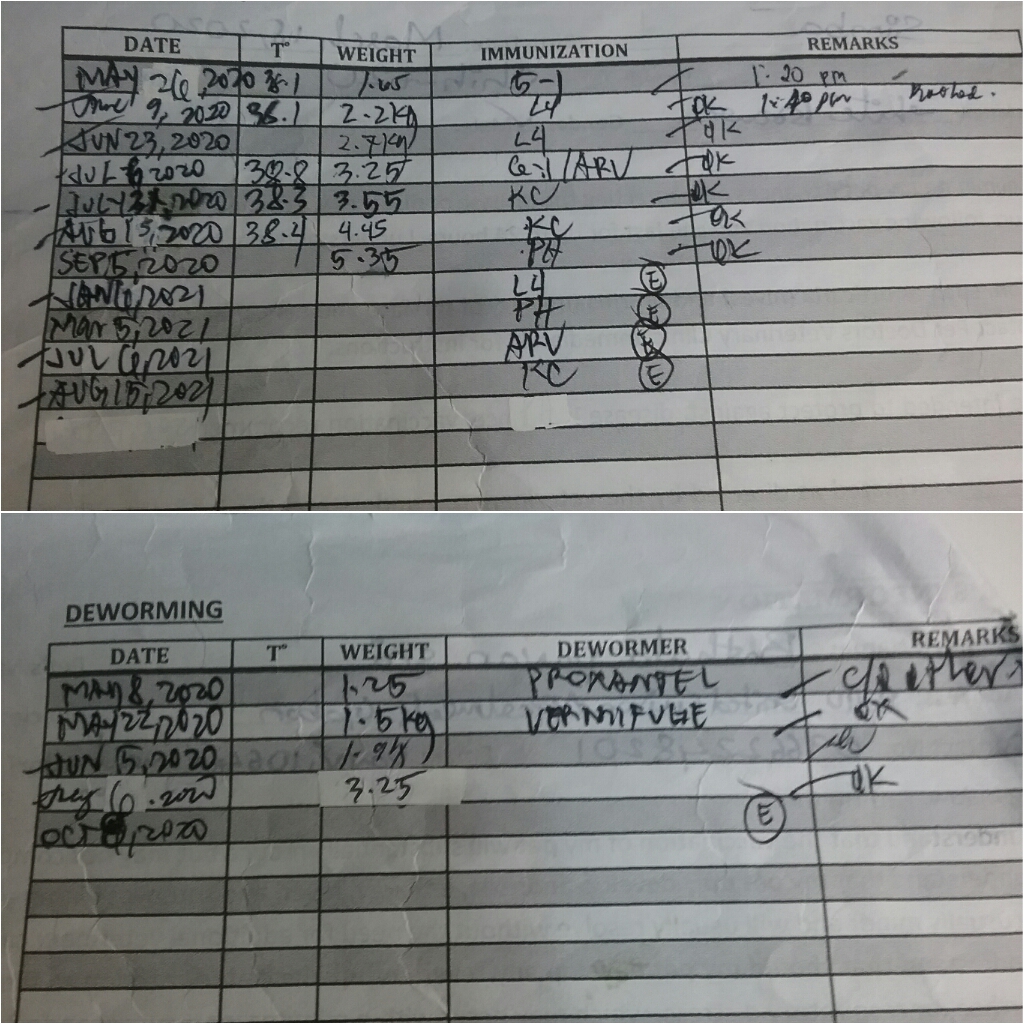 DATE T° WEIGHT IMMUNIZATION REMARKS
MAY 26, 2020 38.1 1.65 5-1 1:20 pm
June 9, 2020 38.1 2.2kg L4 OK 1:40 pm
JUN 23, 2020 2.7kg L4 OK
JUL 6, 2020 38.8 3.25 6-1/ARV OK
JULY 2020 38.3 3.55 KC OK
AUG 15, 2020 38.4 4.45 KC OK
SEP 5, 2020 5.35 PH OK
JAN 6, 2021 L4 E
Mar 5, 2021 PH E
JUL 6, 2021 ARV E
AUG 15, 2021 KC E
DEWORMING
DATE T° WEIGHT DEWORMER REMARKS
MAY 8, 2020 1.25 PROXANTEL
MAY 22, 2020 1.5kg VERMIFUGE OK
JUN 5, 2020
July 6, 2020 3.25 OK
OCT 2020 E